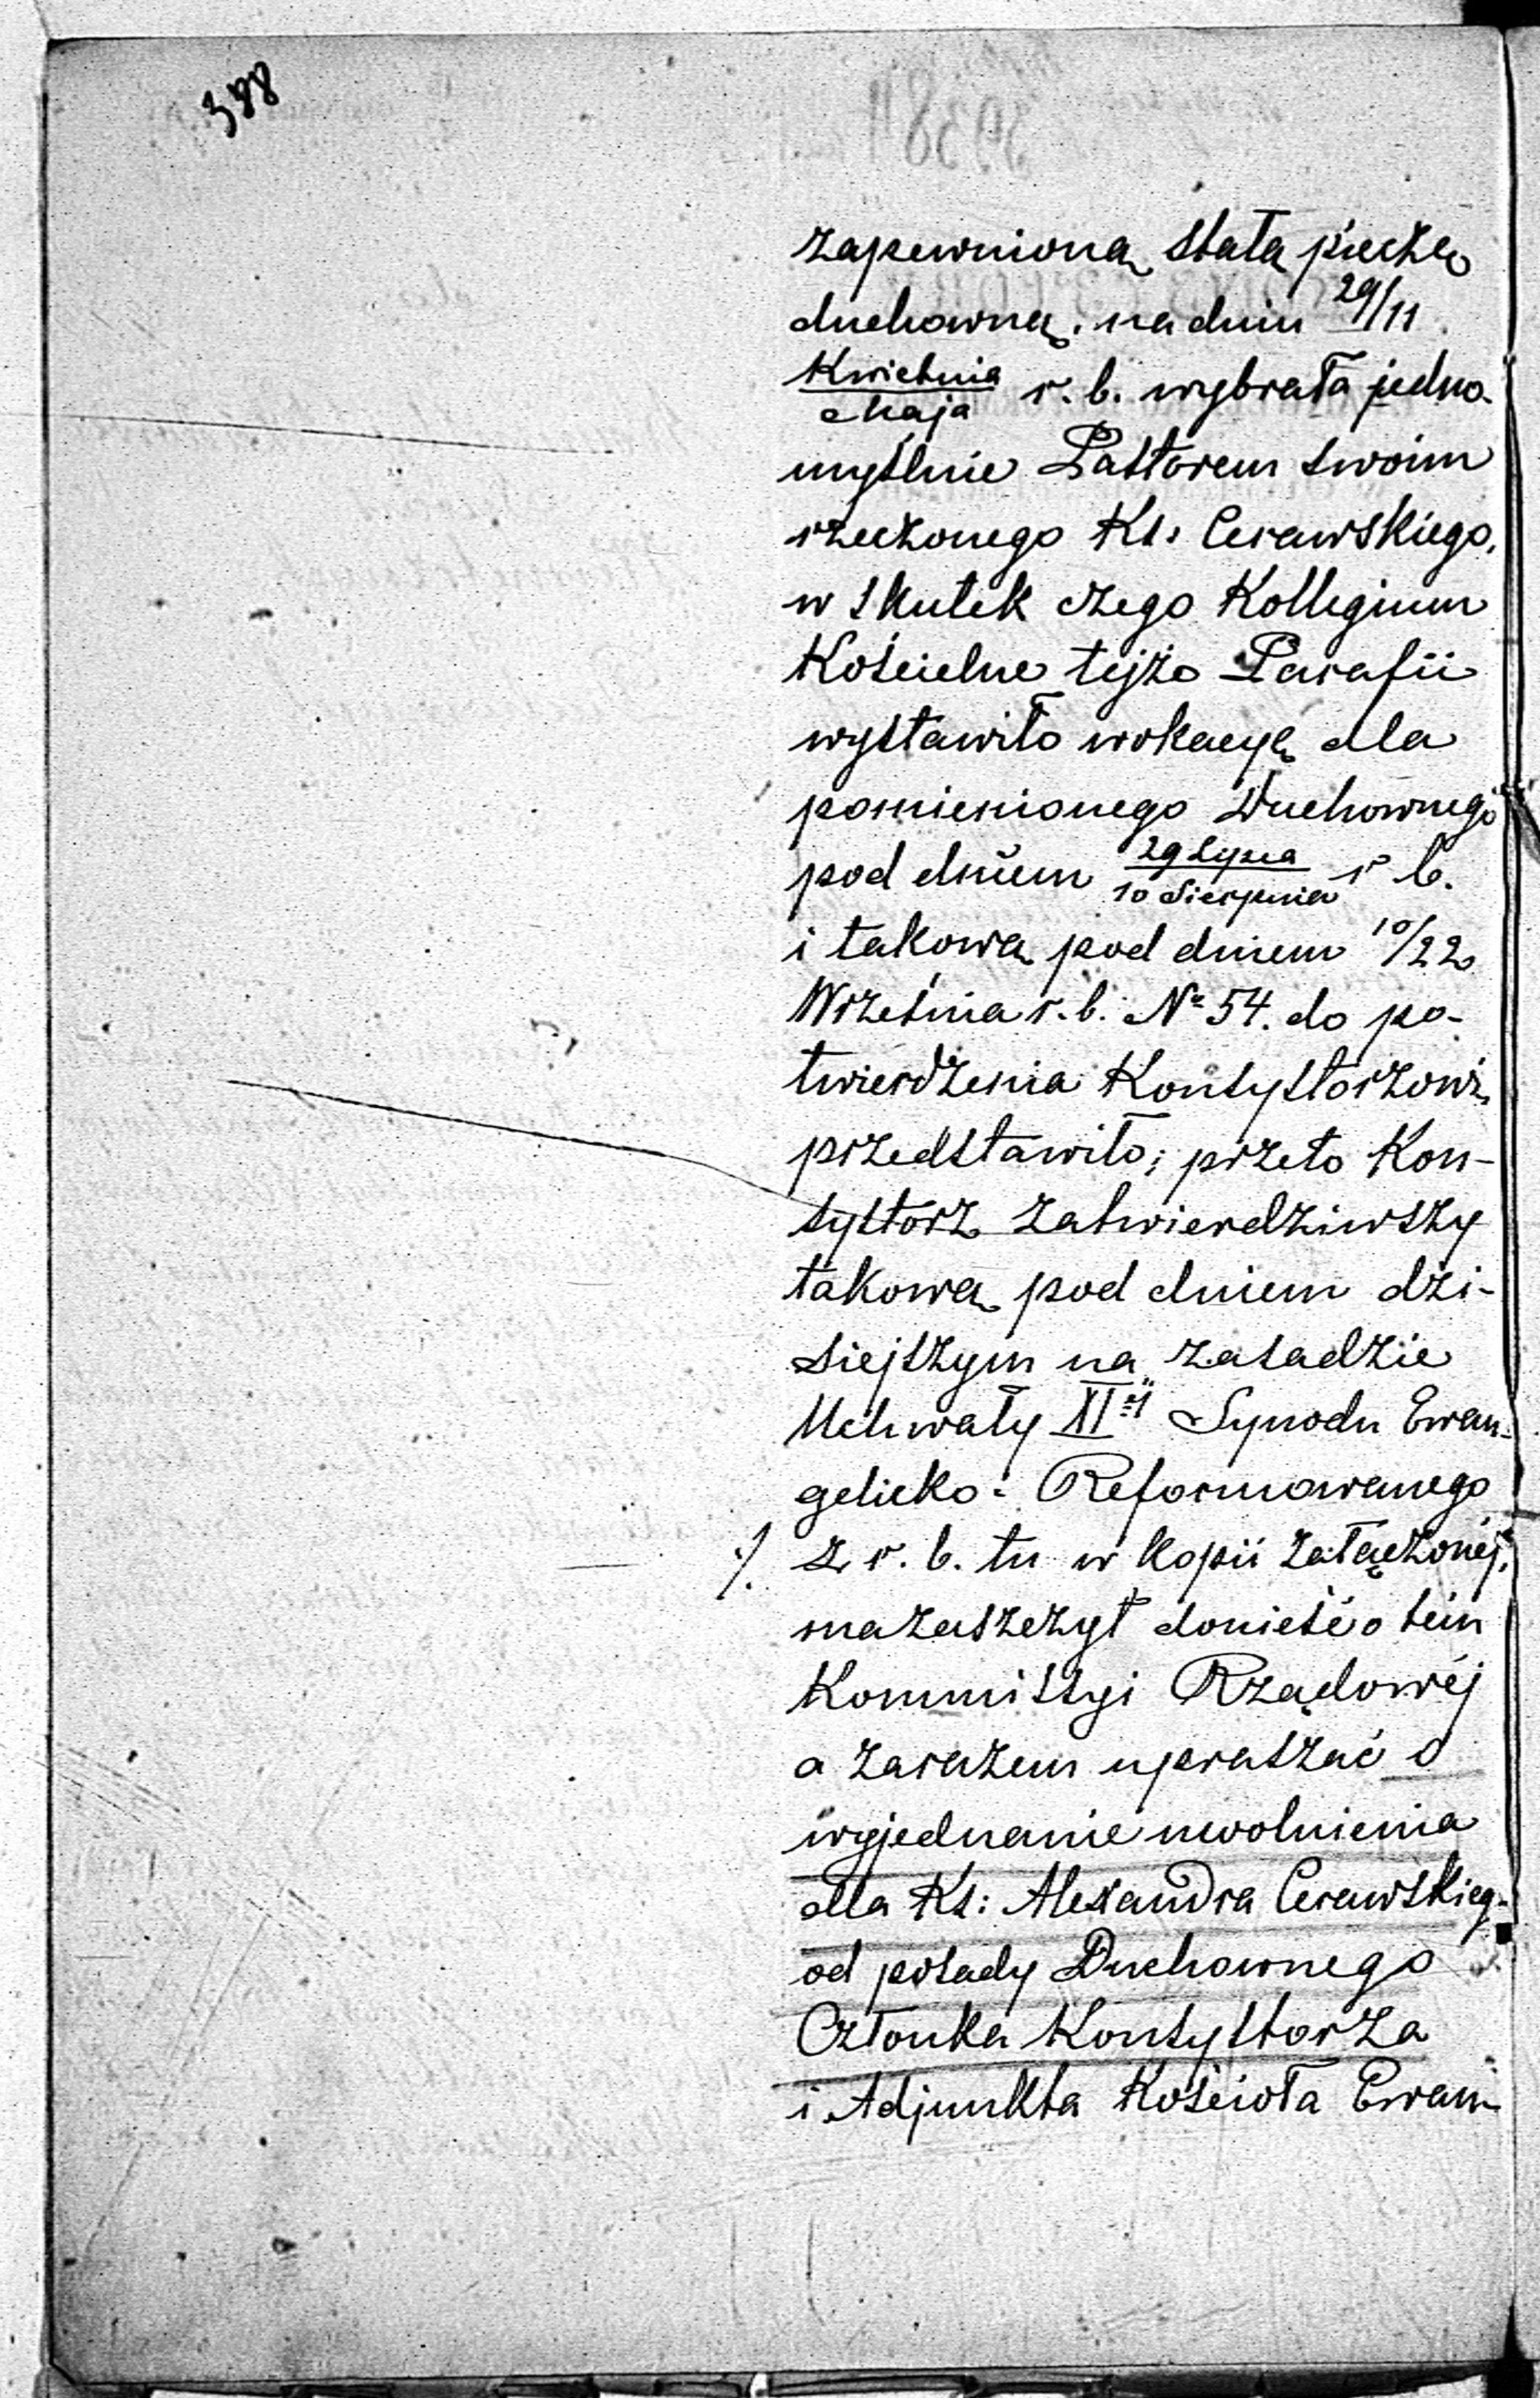 388
zapewnioną stałą pieczę
duchowną, na dniu 29/11
Kwietnia/Maja r. b. wybrała jedno-
myślnie Pastorem swoim
rzeczonego Ks: Cerawskiego,
w skutek czego Kollegium
Kościelne tejże Parafii
wystawiło wokacyą dla
pomienionego Duchownego
pod dniem 29 Lipca/10 Sierpnia r b.
i takową pod dniem 10/22
Września r. b. № 54. do po-
twierdzenia Konsystorzowi
przedstawiło; przeto Kon-
systorz zatwierdziwszy
takową pod dniem dzi-
siejszym na zasadzie
Uchwały XIej Synodu Ewan-
gelicko-Reformowanego
./. z r. b. tu w kopii załączonéj,
ma zaszczyt donieść o tém
Kommissyi Rządowéj
a zarazem upraszać o
wyjednanie uwolnienia
dla Ks: Alexandra Cerawskieg.
od posady Duchownego
Członka Konsystorza
i Adjunkta Kościoła Ewan-